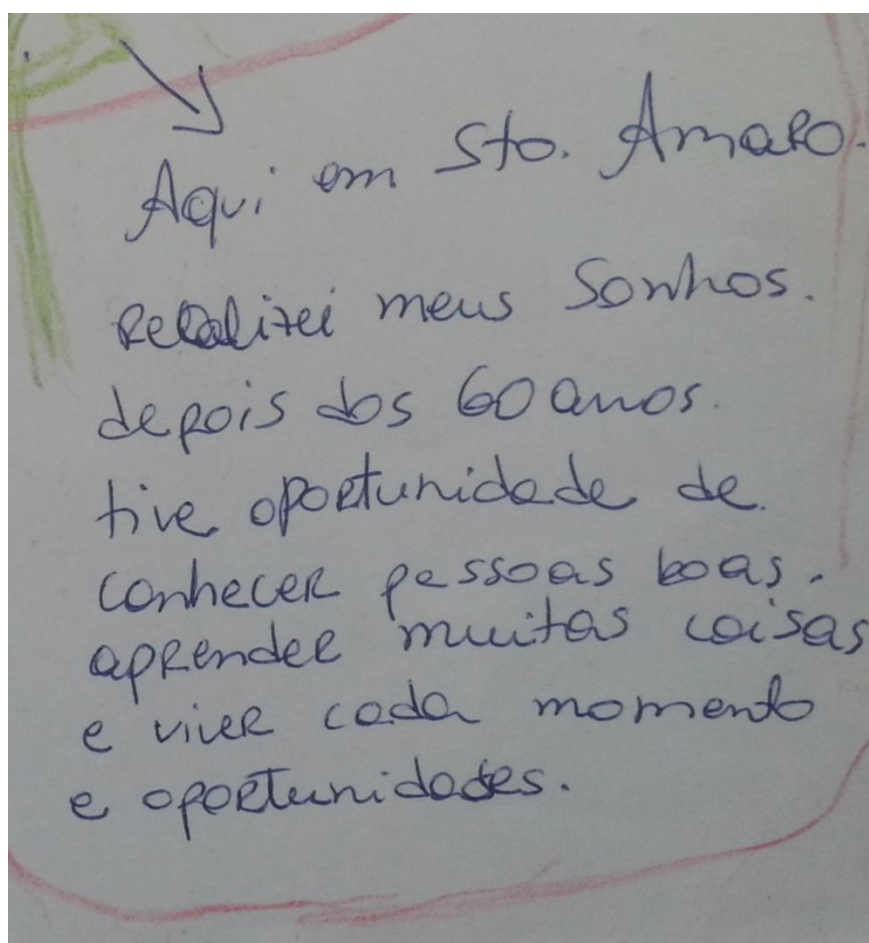 Aqui em Sto. Amaro.
realizei meus Sonhos.
depois dos 60 anos.
tive oportunidade de
conhecer pessoas boas.
aprender muitas coisas
e viver cada momento
e oportunidades.